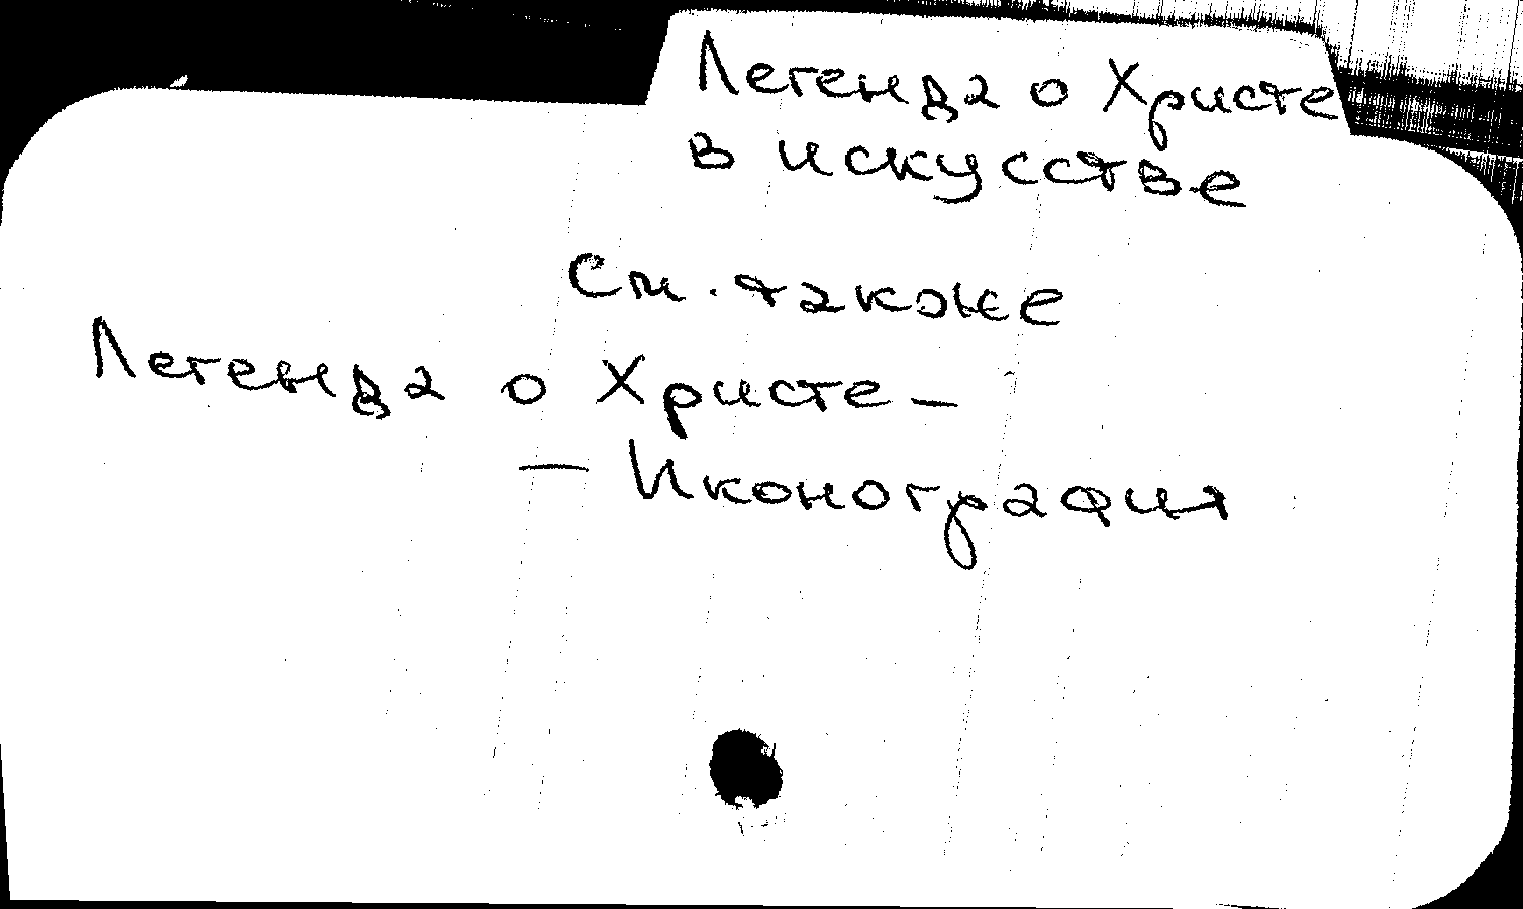 Легенда о Христе
в искусстве
См. также
Легенда о Христе –
– Иконография